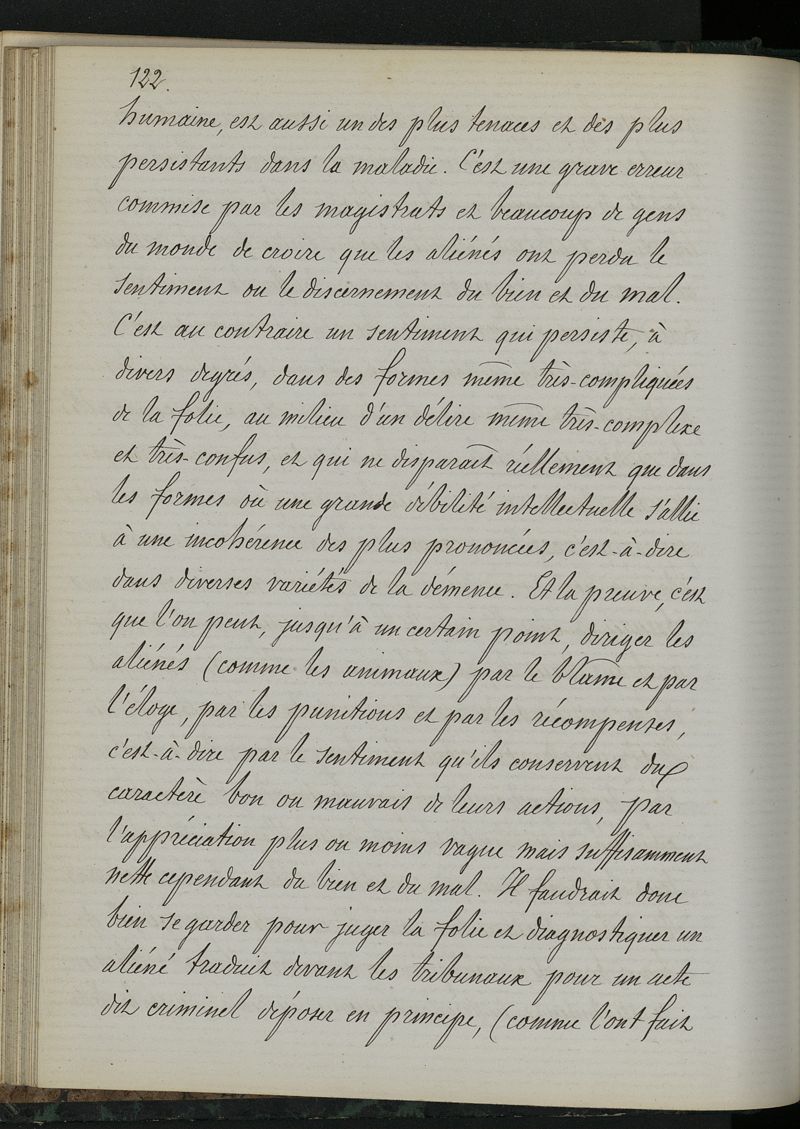 122.
humaine, est aussi un des plus tenaces et des plus
persistants dans la maladie. C'est une grave erreur
commise par les magistrats et beaucoup de gens
du monde de croire que les aliénés ont perdu le
sentiment ou le discernement du bien et du mal.
C'est au contraire un sentiment qui persiste, à
divers degrés, dans des formes même très-compliquées
de la folie, au milieu d'un délire même très-complexe
et très-confus, et qui ne disparaît réellement que dans
les formes où une grande débilité intellectuelle s'allie
à une incohérence des plus prononcées, c'est-à-dire
dans diverses variétés de la démence. Et la preuve, c'est
que l'on peut, jusqu'à un certain point, diriger les
aliénés (comme les animaux) par le blâme et par
l'éloge, par les punitions et par les récompenses,
c'est-à-dire par le sentiment qu'ils conservent du
caractère bon ou mauvais de leurs actions, par
l'appréciation plus ou moins vague mais suffisamment
nette cependant du bien et du mal. Il faudrait donc
bien se garder pour juger la folie et diagnostiquer un
aliéné traduit devant les tribunaux pour un acte
dit criminel déposer en principe, (comme l'ont fait